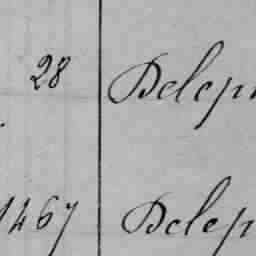 28 Delep
1467 Delep